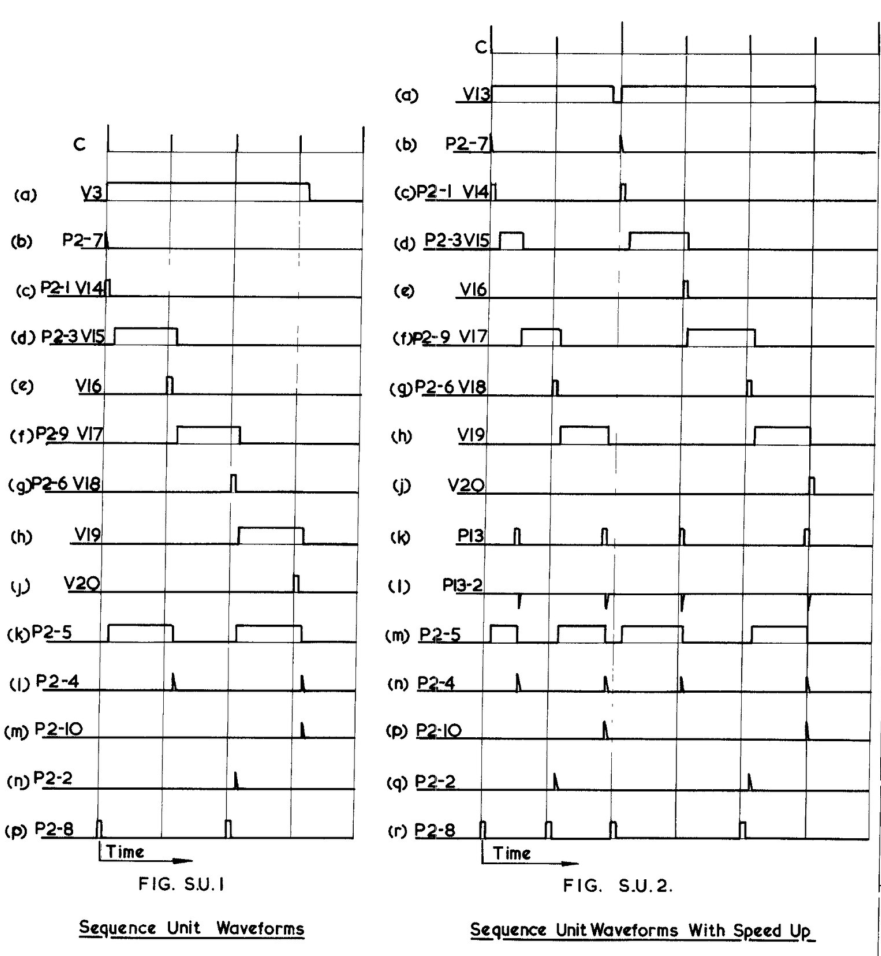 C
(a) V3
(b) P2-7
(c) P2-1 V14
(d) P2-3 V15
(e) V16
(f) P2-9 V17
(g) P2-6 V18
(h) V19
(j) V20
(k) P2-5
(l) P2-4
(m) P2-10
(n) P2-2
(p) P2-8
Time
FIG. S.U.1
Sequence Unit Waveforms
C
(a) V13
(b) P2-7
(c) P2-1 V14
(d) P2-3 V15
(e) V16
(f) P2-9 V17
(g) P2-6 V18
(h) V19
(j) V20
(k) P13
(l) P13-2
(m) P2-5
(n) P2-4
(p) P2-10
(q) P2-2
(r) P2-8
Time
FIG. S.U.2.
Sequence Unit Waveforms With Speed Up